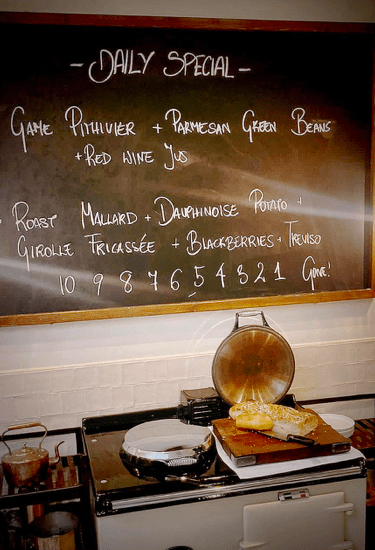 - DAILY SPECIAL -
GAME PITHIVIER + PARMESAN GREEN BEANS
+ RED WINE JUS
ROAST MALLARD + DAUPHINOISE POTATO +
GIROLLE FRICASSÉE + BLACKBERRIES + TREVISO
10 9 8 7 6 5 4 3 2 1 GONE!